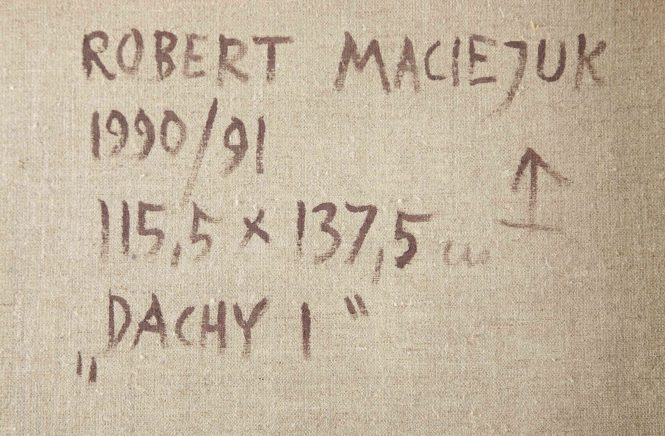 ROBERT MACIEJUK
1990/91
115,5 x 137,5 cm
„DACHY I"